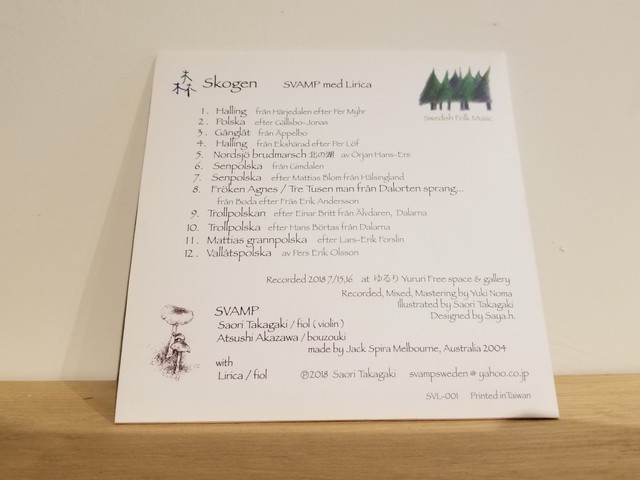 森 Skogen SVAMP med Lirica
Swedish Folk Music
1. Halling från Härjedalen efter Per Myhr
2. Polska efter Gällsbo-Jonas
3. Gånglåt från Äppelbo
4. Halling från Ekshärad efter Per Löf
5. Nordsjö brudmarsch 北の湖 av Örjan Hans-Ers
6. Senpolska från Gimdalen
7. Senpolska efter Mattias Blom från Hälsingland
8. Fröken Agnes / Tre Tusen man från Dalorten sprang...
från Boda efter Fräs Erik Andersson
9. Trollpolskan efter Einar Britt från Älvdaren, Dalarna
10. Trollpolska efter Hans Börtas från Dalarna
11. Mattias grannpolska efter Lars-Erik Forslin
12. Vallåtspolska av Pers Erik Olsson
Recorded 2018 7/15,16 at ゆるり Yururi Free space & gallery
Recorded, Mixed, Mastering by Yuki Noma
Illustrated by Saori Takagaki
Designed by Saya.h.
SVAMP
Saori Takagaki / fiol ( violin )
Atsushi Akazawa / bouzouki
made by Jack Spira Melbourne, Australia 2004
with
Lirica / fiol
℗2018 Saori Takagaki svampsweden@yahoo.co.jp
SVL-001 Printed in Taiwan